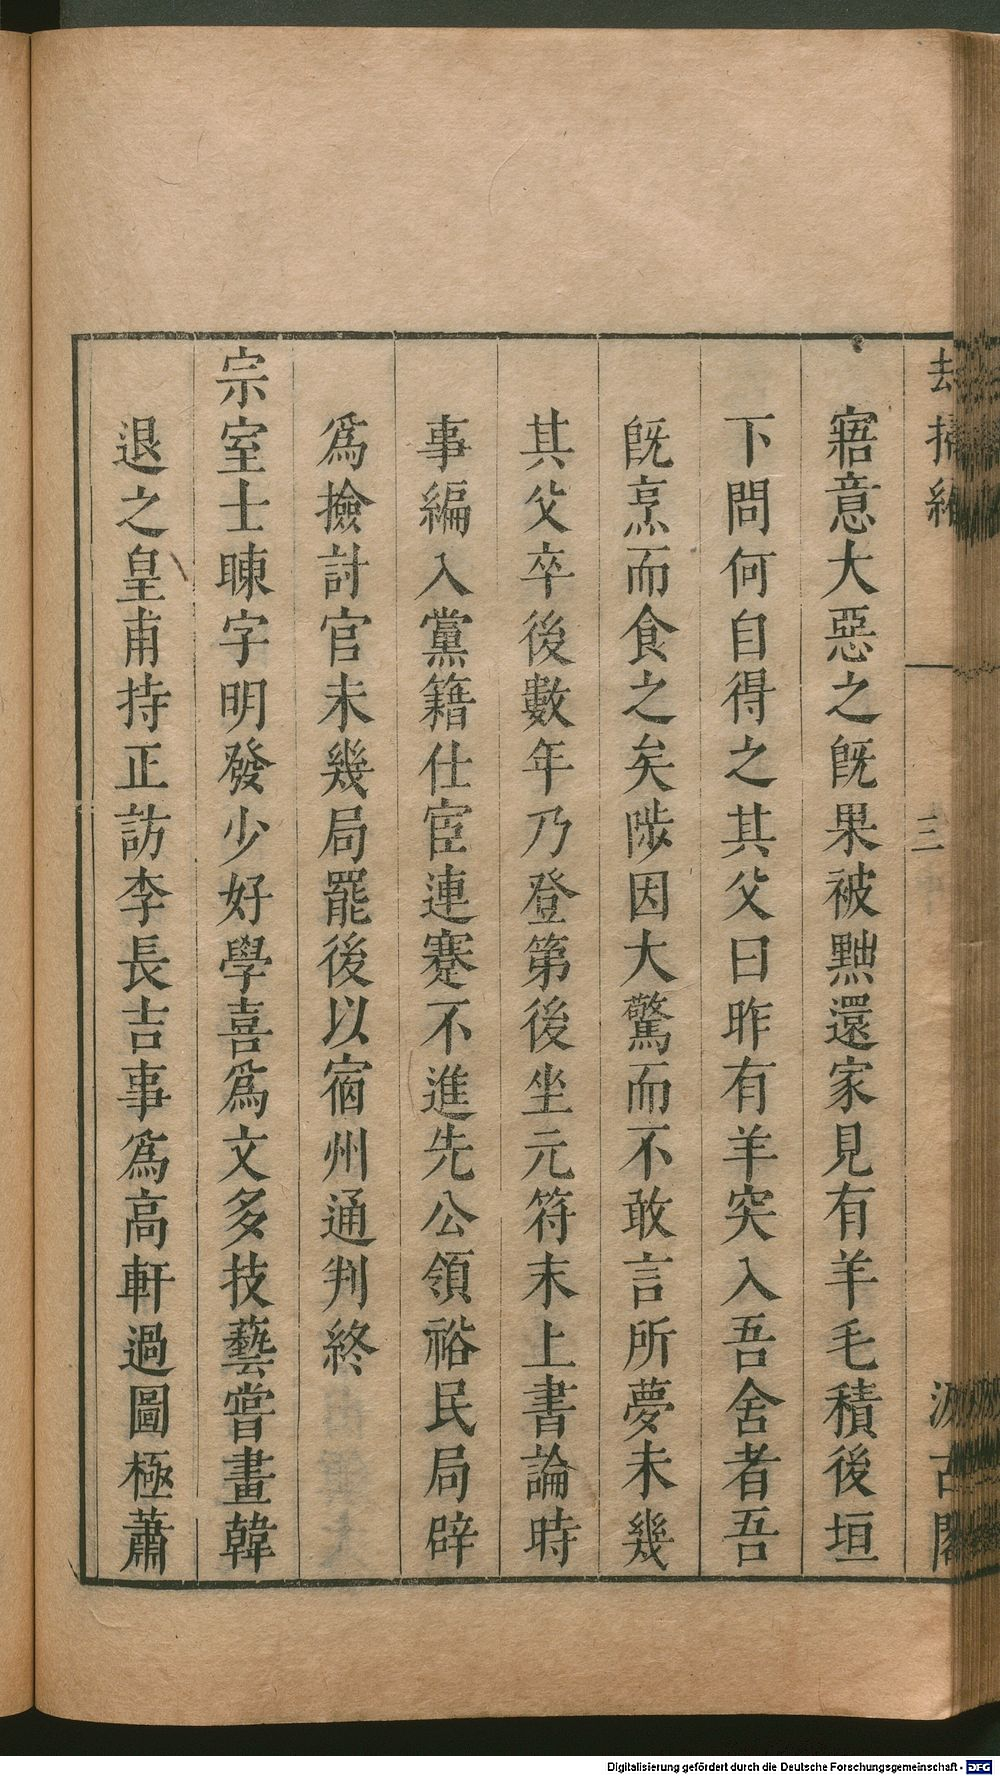 寤意大惡之既果被黜還家見有羊毛積後垣
下問何自得之其父曰昨有羊突入吾舍者吾
既烹而食之矣陟因大驚而不敢言所夢未幾
其父卒後數年乃登第後坐元符末上書論時
事編入黨籍仕宦連蹇不進先公領裕民局辟
爲撿討官未幾局罷後以宿州通判終
宗室士暕字明發少好學喜爲文多技藝嘗畫韓
退之皇甫持正訪李長吉事爲高軒過圖極蕭
三
汲古閣
Digitalisierung gefördert durch die Deutsche Forschungsgemeinschaft - DFG